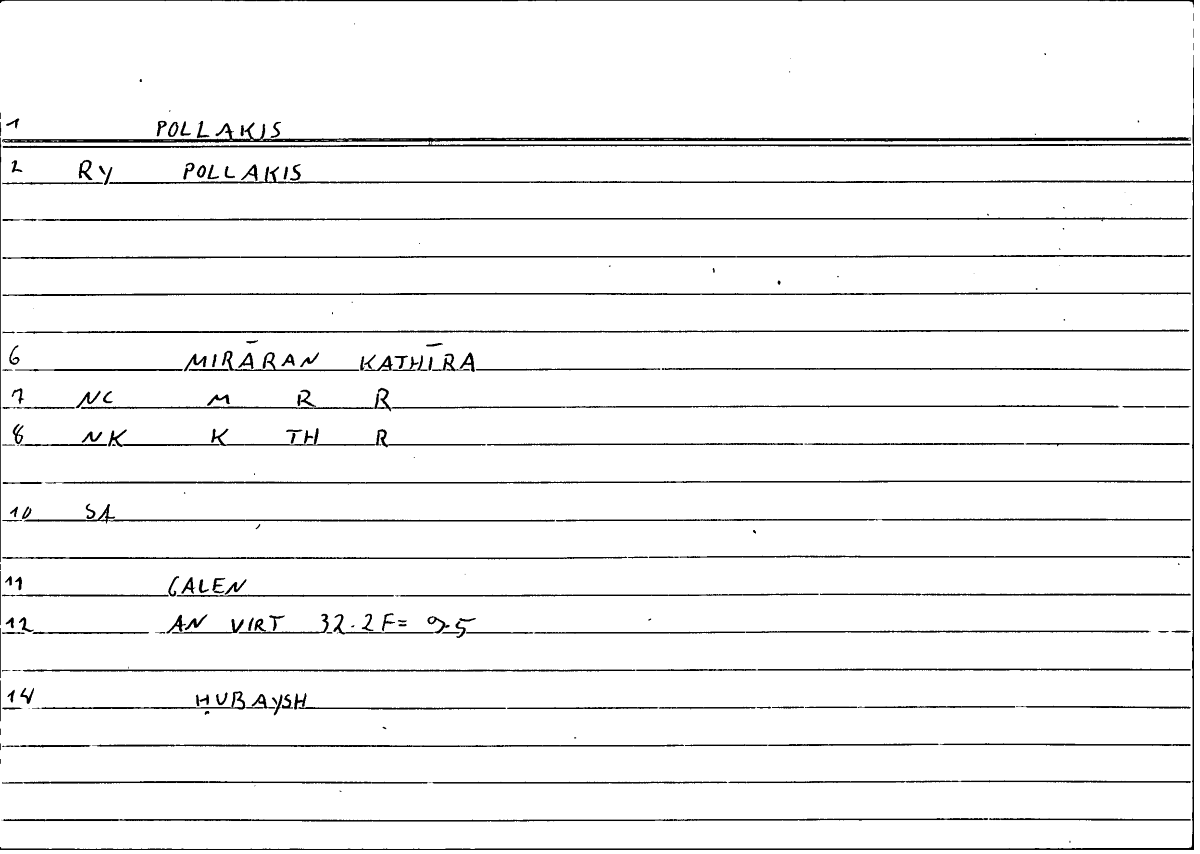 1 POLLAKIS
2 RY POLLAKIS
6 MIRĀRAN KATHĪRA
7 NC M R R
8 NK K TH R
10 SA
11 GALEN
12 AN VIRT 32.2F= 9.5
14 ḤUBAYSH